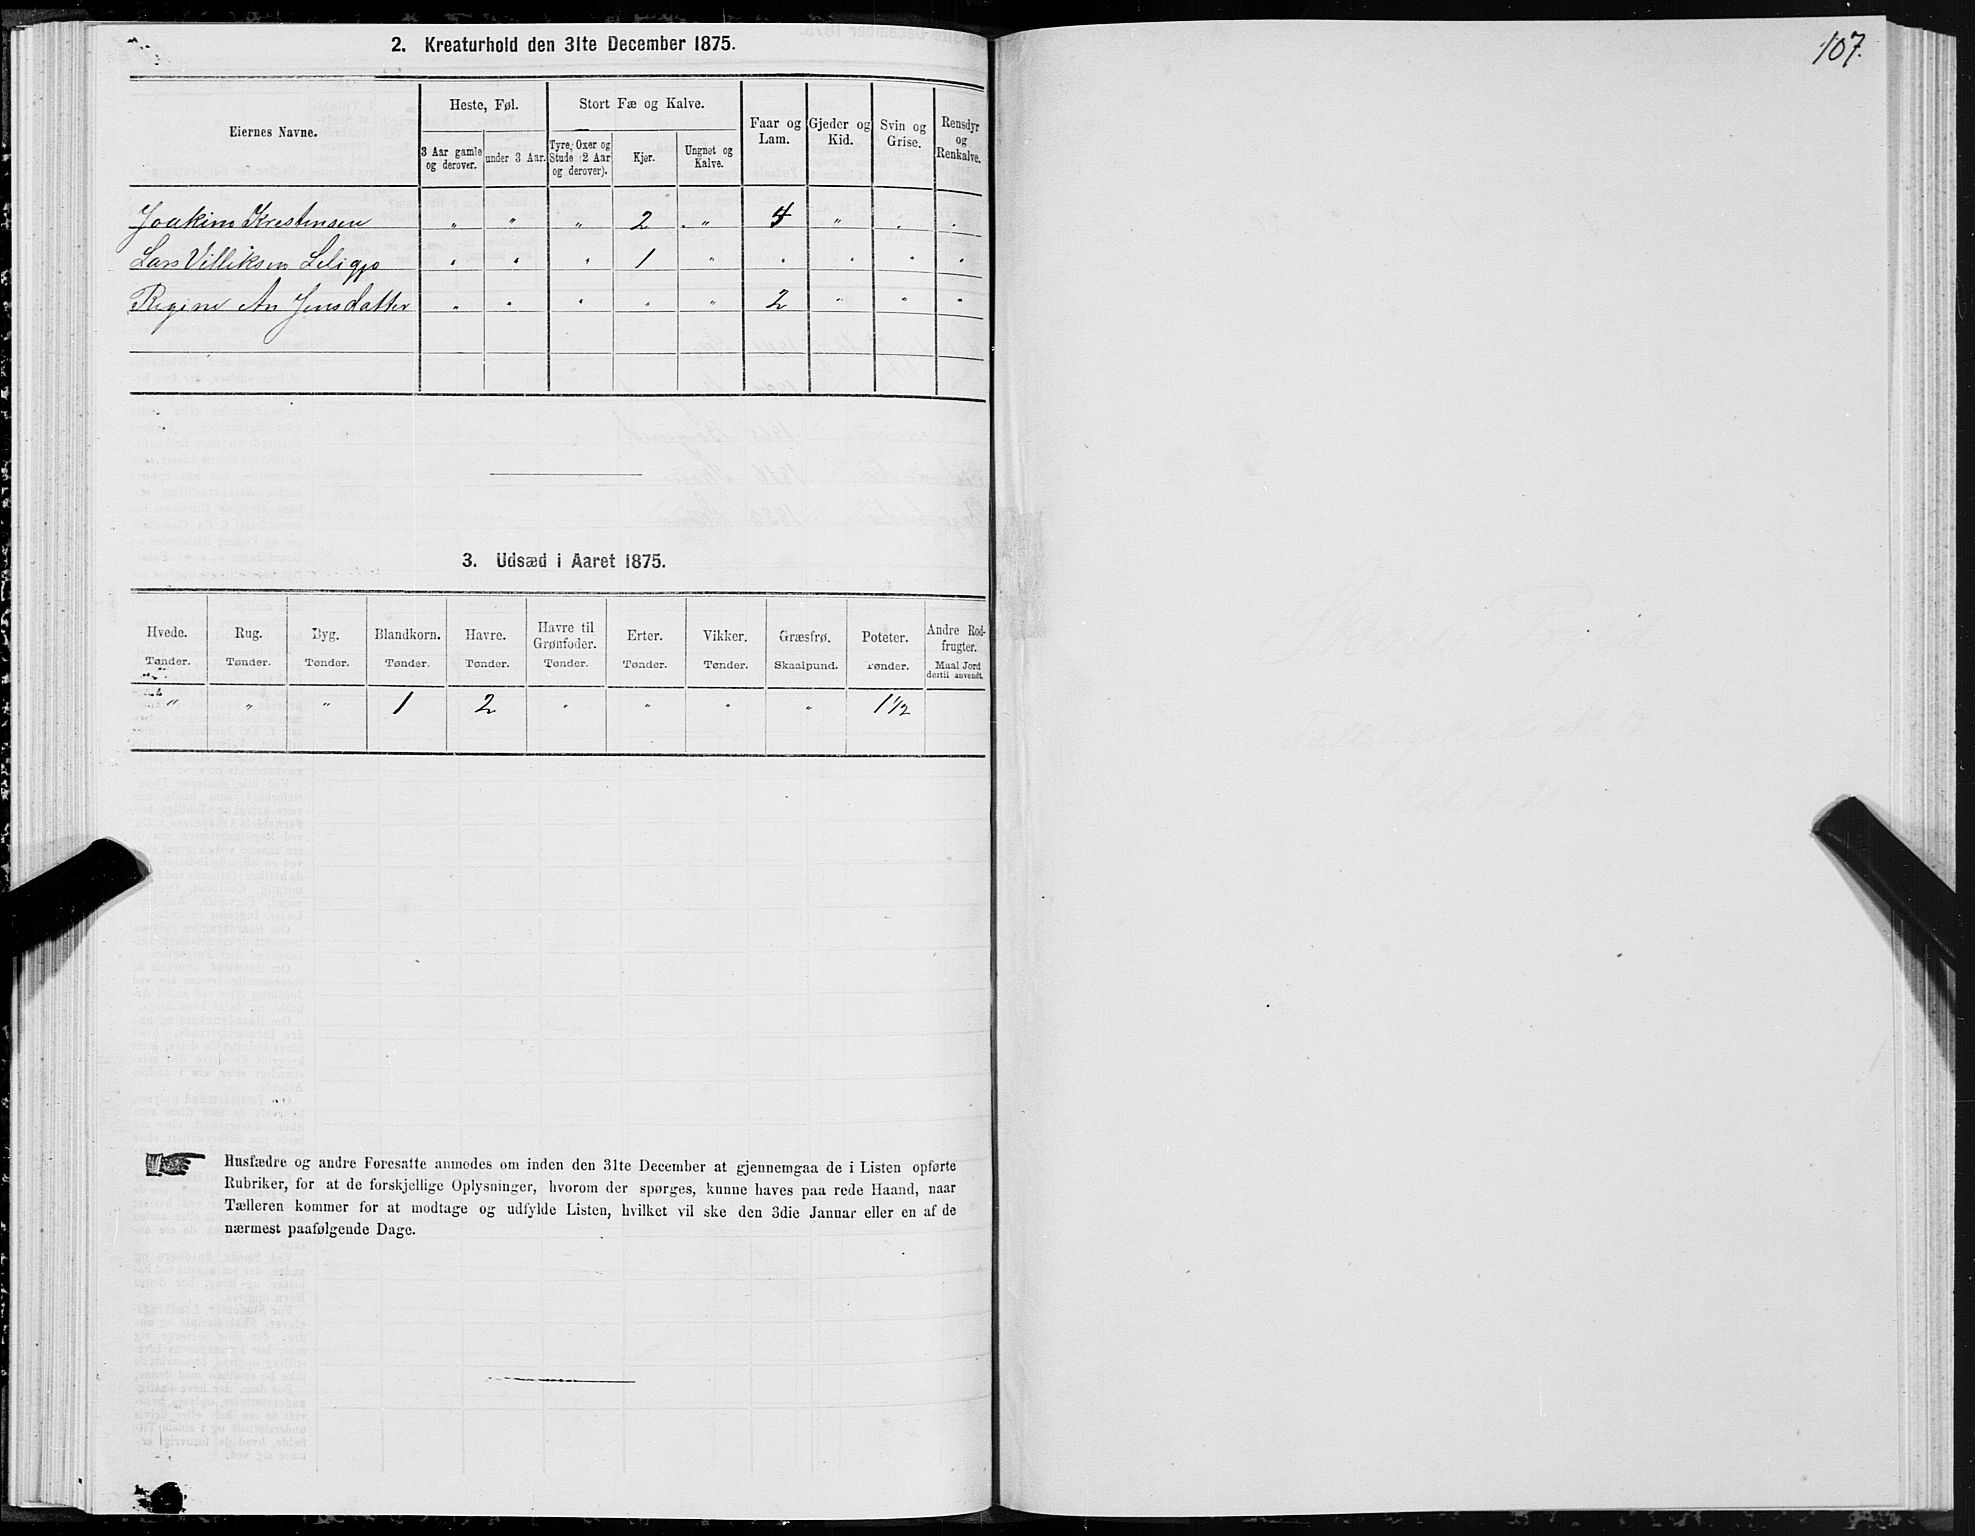 107.
2. Kreaturhold den 31te December 1875.
Eiernes Navne.
Heste, Føl.
Stort Fæ og Kalve.
Faar og Lam.
Gjeder og Kid.
Svin og Grise.
Rensdyr og Renkalve.
3 Aar gamle og derover.
under 3 Aar.
Tyre, Oxer og Stude (2 Aar og derover).
Kjør.
Ungnøt og Kalve.
Joakim Krestensen " " " 2 " " " "
Lars Villiksen " " " 1 " " " " "
Regine An Jensdatter " " " " " 2 " " "
3. Udsæd i Aaret 1875.
Hvede. Rug. Byg. Blandkorn. Havre. Havre til Grønfoder. Erter. Vikker. Græsfrø. Poteter. Andre Rodfrugter.
Tønder. Tønder. Tønder. Tønder. Tønder. Tønder. Tønder. Tønder. Skaalpund. Tønder. Maal Jord dertil anvendt.
" " " 1 2 " " " " 1 1/2
Husfædre og andre Foresatte anmodes om inden den 31te December at gjennemgaa de i Listen opførte
Rubriker, for at de forskjellige Oplysninger, hvorom der spørges, kunne haves paa rede Haand, naar
Tælleren kommer for at modtage og udfylde Listen, hvilket vil ske den 3die Januar eller en af de
nærmest paafølgende Dage.